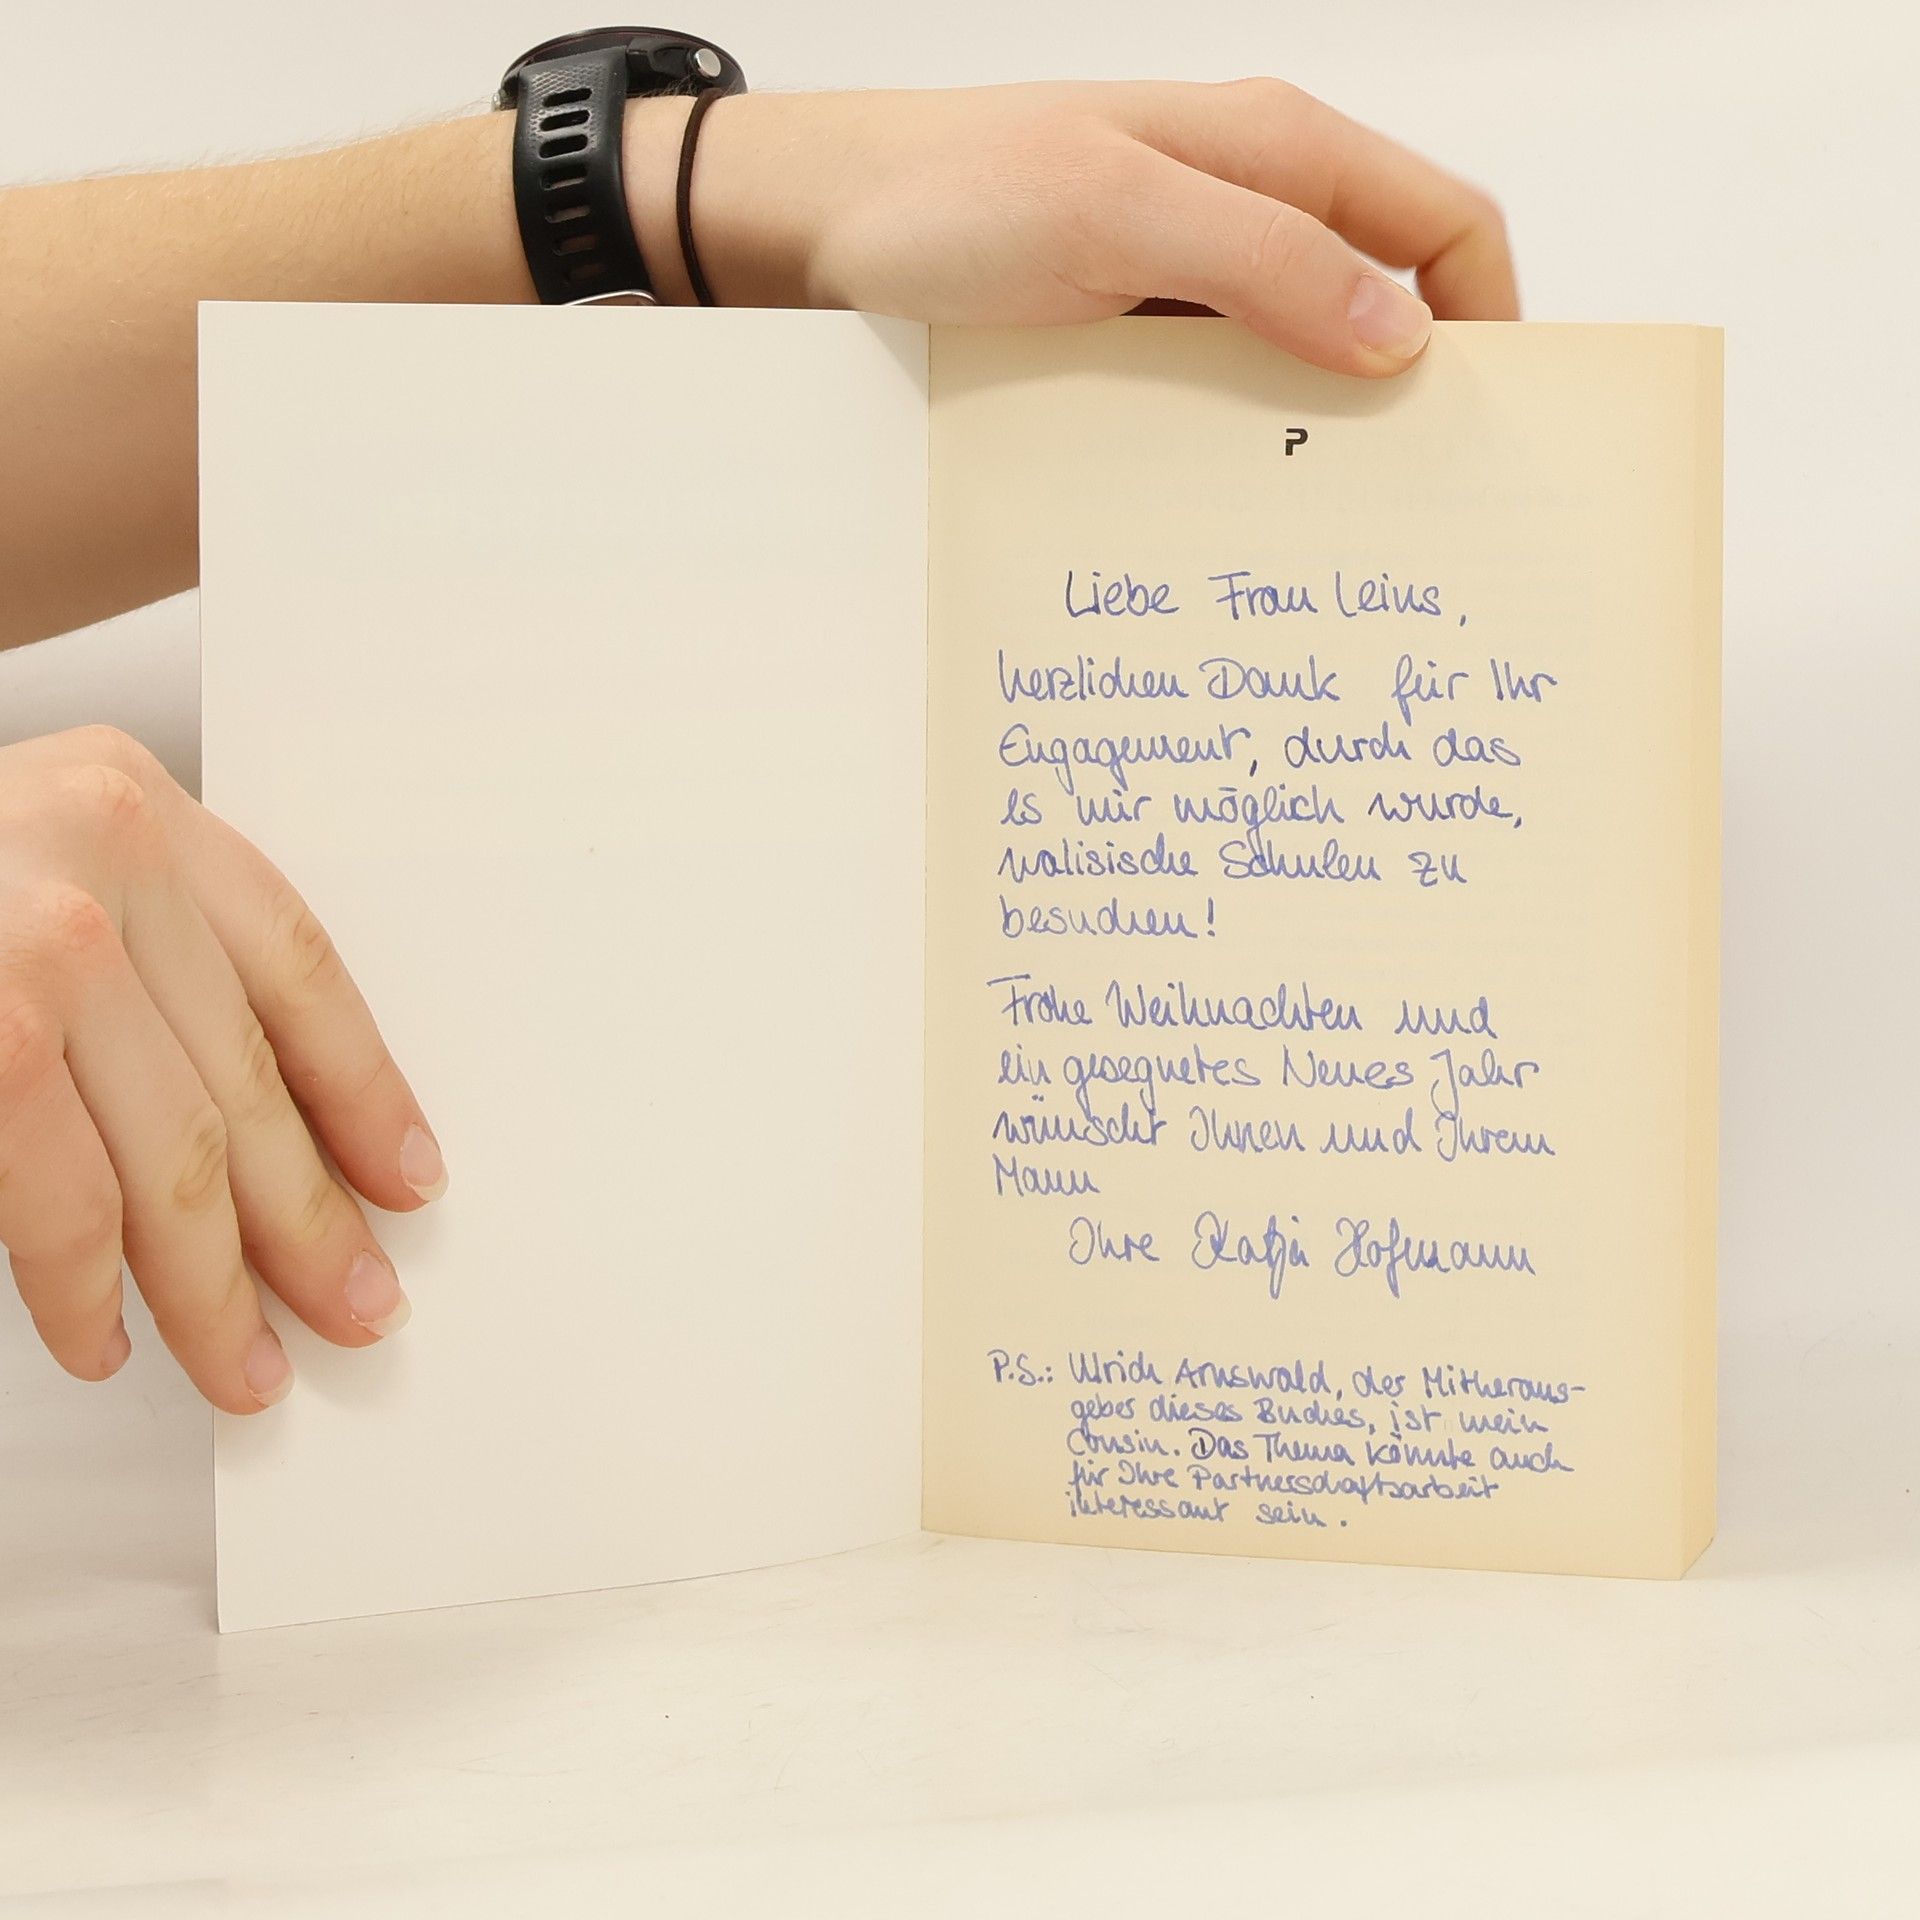 P
Liebe Frau Leins,
herzlichen Dank für Ihr
Engagement, durch das
es mir möglich wurde,
walisische Schulen zu
besuchen!
Frohe Weihnachten und
ein gesegnetes Neues Jahr
wünscht Ihnen und Ihrem
Mann
Ihre Katja Hofmann
P.S.: Ulrich Arnswald, der Mitheraus-
geber dieses Buches, ist mein
Cousin. Das Thema könnte auch
für Ihre Partnerschaftsarbeit
interessant sein.